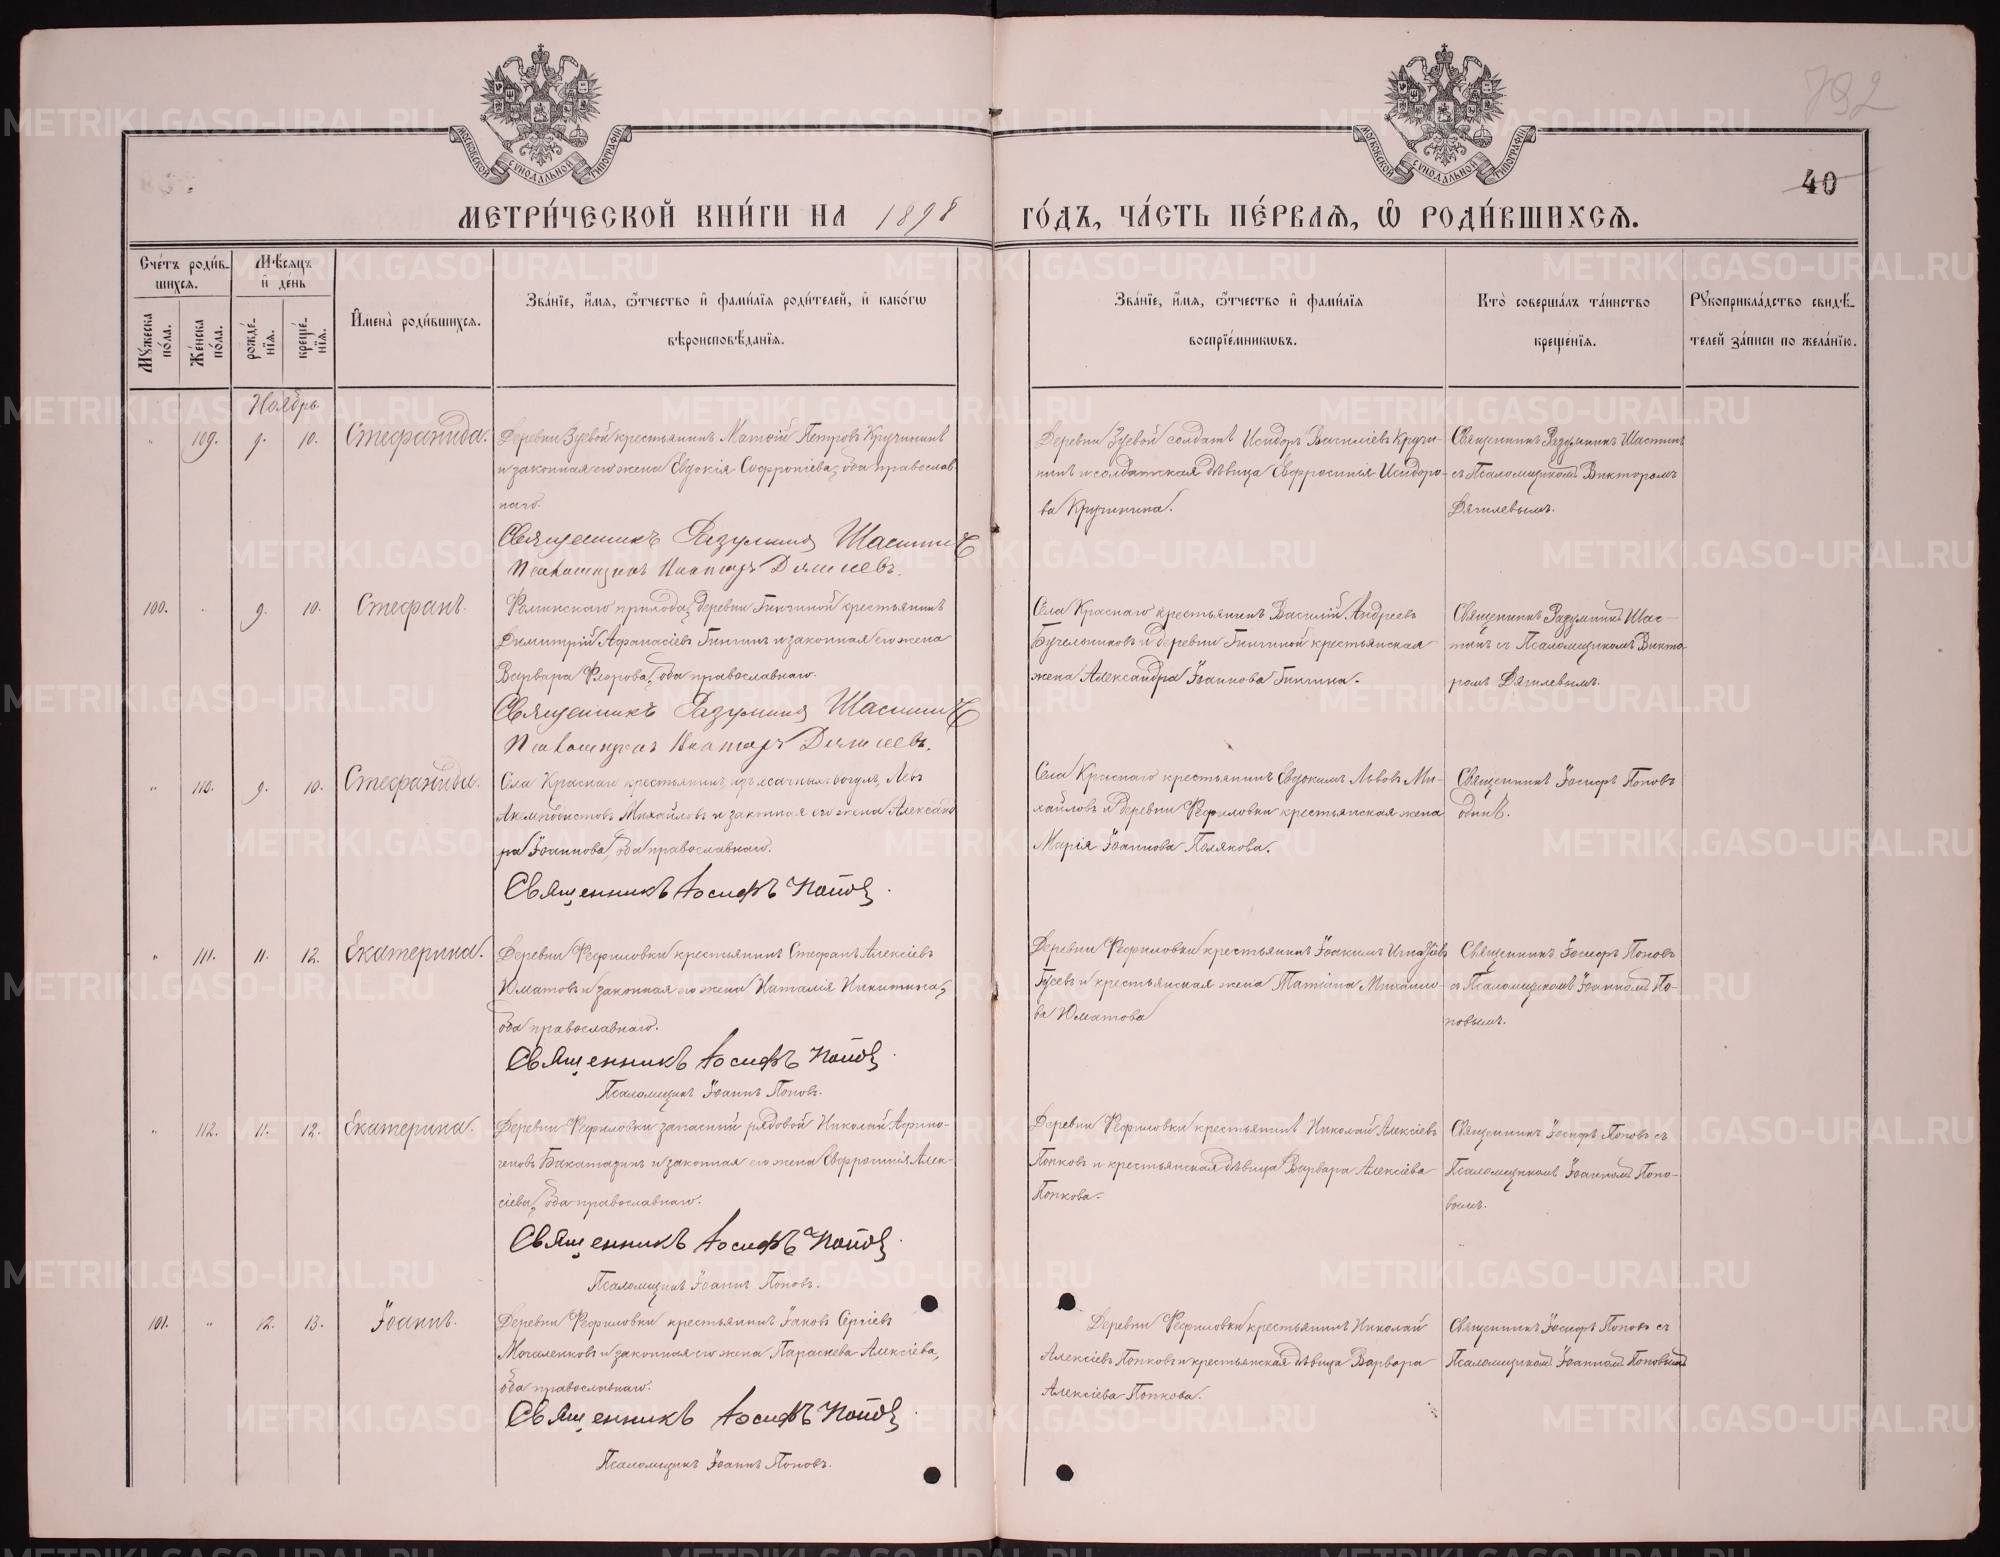 792
40
МОСКОВСКОЙ СѴНОДАЛЬНОЙ ТИПОГРАФІИ
МОСКОВСКОЙ СѴНОДАЛЬНОЙ ТИПОГРАФІИ
МЕТРИ́ЧЕСКОЙ КНИ́ГИ НА 1898 ГО́ДЪ, ЧА́СТЬ ПЕ́РВАѦ, Ѡ҆ РОДИ́ВШИХСѦ.
Сче́тъ роди́в-
шихся.
Мꙋжеска по́ла.
Же́нска по́ла.
Мѣ́сяцъ
и҆ де́нь
рожде́-
нїя.
креще́-
нїя.
И҆мена̀ роди́вшихся.
Зва́нїе, и҆́мя, ѻ҆́тчество и҆ фами́лїя роди́телей, и҆ како́гѡ
вѣроисповѣ́данїя.
Зва́нїе, и҆́мя, ѻ҆́тчество и҆ фами́лїя
воспрїе́мникѡвъ.
Кто̀ соверша́лъ та́инство
креще́нїя.
Рꙋкоприкла́дство свидѣ́-
телей за́писи по жела́нїю.
Ноябрь
" 109. 9. 10. Стефанида.
Деревни Зуевой крестьянинъ Матѳій Петровъ Кручининъ
и законная его жена Евдокія Софроніева, оба православ-
наго.
Священникъ Разумникъ Шастинъ
Псаломщикъ Викторъ Дягилевъ.
Деревни Зуевой солдатъ Исидоръ Василіевъ Кручи-
нинъ и солдатская дѣвица Евфросинія Исидоро-
ва Кручинина.
Священникъ Разумникъ Шастинъ
съ Псаломщикомъ Викторомъ
Дягилевымъ.
100. " 9. 10. Стефанъ.
прихода, деревни крестьянинъ
Димитрій Афанасіевъ и законная его жена
Варвара Флорова, оба православнаго.
Священникъ Разумникъ Шастинъ
Псаломщикъ Викторъ Дягилевъ.
Села Краснаго крестьянинъ Василій Андреевъ
и деревни крестьянская
жена Александра Іоаннова
Священникъ Разумникъ Шас-
тинъ съ Псаломщикомъ Викто-
ромъ Дягилевымъ.
" 110. 9. 10. Стефанида.
Села Краснаго крестьянинъ, изъ ясачныхъ вогулъ, Левъ
Михайловъ и законная его жена Александ-
ра Іоаннова, оба православнаго.
Священникъ Іосифъ Поповъ.
Села Краснаго крестьянинъ Евдокимъ Львовъ Ми-
хайловъ и деревни Рефиловки крестьянская жена
Марія Іоаннова Полякова.
Священникъ Іосифъ Поповъ
одинъ.
" 111. 11. 12. Екатерина.
Деревни Рефиловки крестьянинъ Стефанъ Алексіевъ
Юматовъ и законная его жена Наталія Никитина,
оба православнаго.
Священникъ Іосифъ Поповъ.
Псаломщикъ Іоаннъ Поповъ.
Деревни Рефиловки крестьянинъ Іоакимъ Игнатіевъ
Гусевъ и крестьянская жена Татіана Михаило-
ва Юматова
Священникъ Іосифъ Поповъ
съ Псаломщикомъ Іоанномъ По-
повымъ.
" 112. 11. 12. Екатерина.
Деревни Рефиловки запасный рядовой Николай Афино-
геновъ и законная его жена Евфросинія Алек-
сіева, оба православнаго.
Священникъ Іосифъ Поповъ.
Псаломщикъ Іоаннъ Поповъ.
Деревни Рефиловки крестьянинъ Николай Алексіевъ
Попковъ и крестьянская дѣвица Варвара Алексіева
Попкова.
Священникъ Іосифъ Поповъ съ
Псаломщикомъ Іоанномъ Попо-
вымъ.
101. " 12. 13. Іоаннъ.
Деревни Рефиловки крестьянинъ Іаковъ Сергіевъ
Мочаленковъ и законная его жена Параскева Алексіева,
оба православнаго.
Священникъ Іосифъ Поповъ.
Псаломщикъ Іоаннъ Поповъ.
Деревни Рефиловки крестьянинъ Николай
Алексіевъ Попковъ и крестьянская дѣвица Варвара
Алексіева Попкова.
Священникъ Іосифъ Поповъ съ
Псаломщикомъ Іоанномъ Поповымъ
METRIKI.GASO-URAL.RU